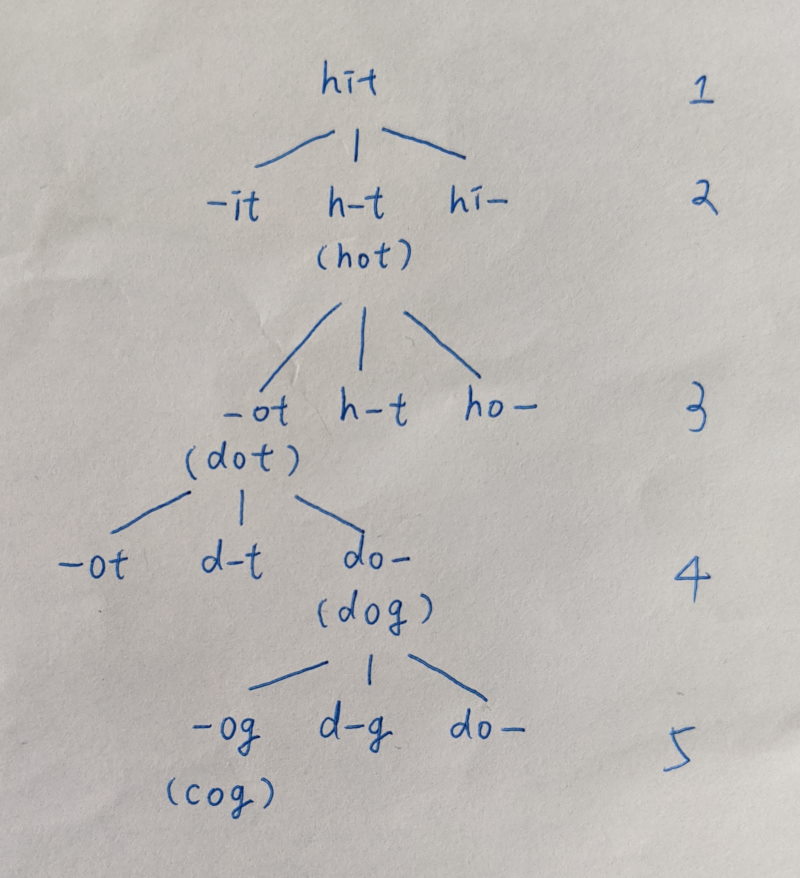 hit 1
-it h-t hi- 2
(hot)
-ot h-t ho- 3
(dot)
-ot d-t do- 4
(dog)
-og d-g do- 5
(cog)